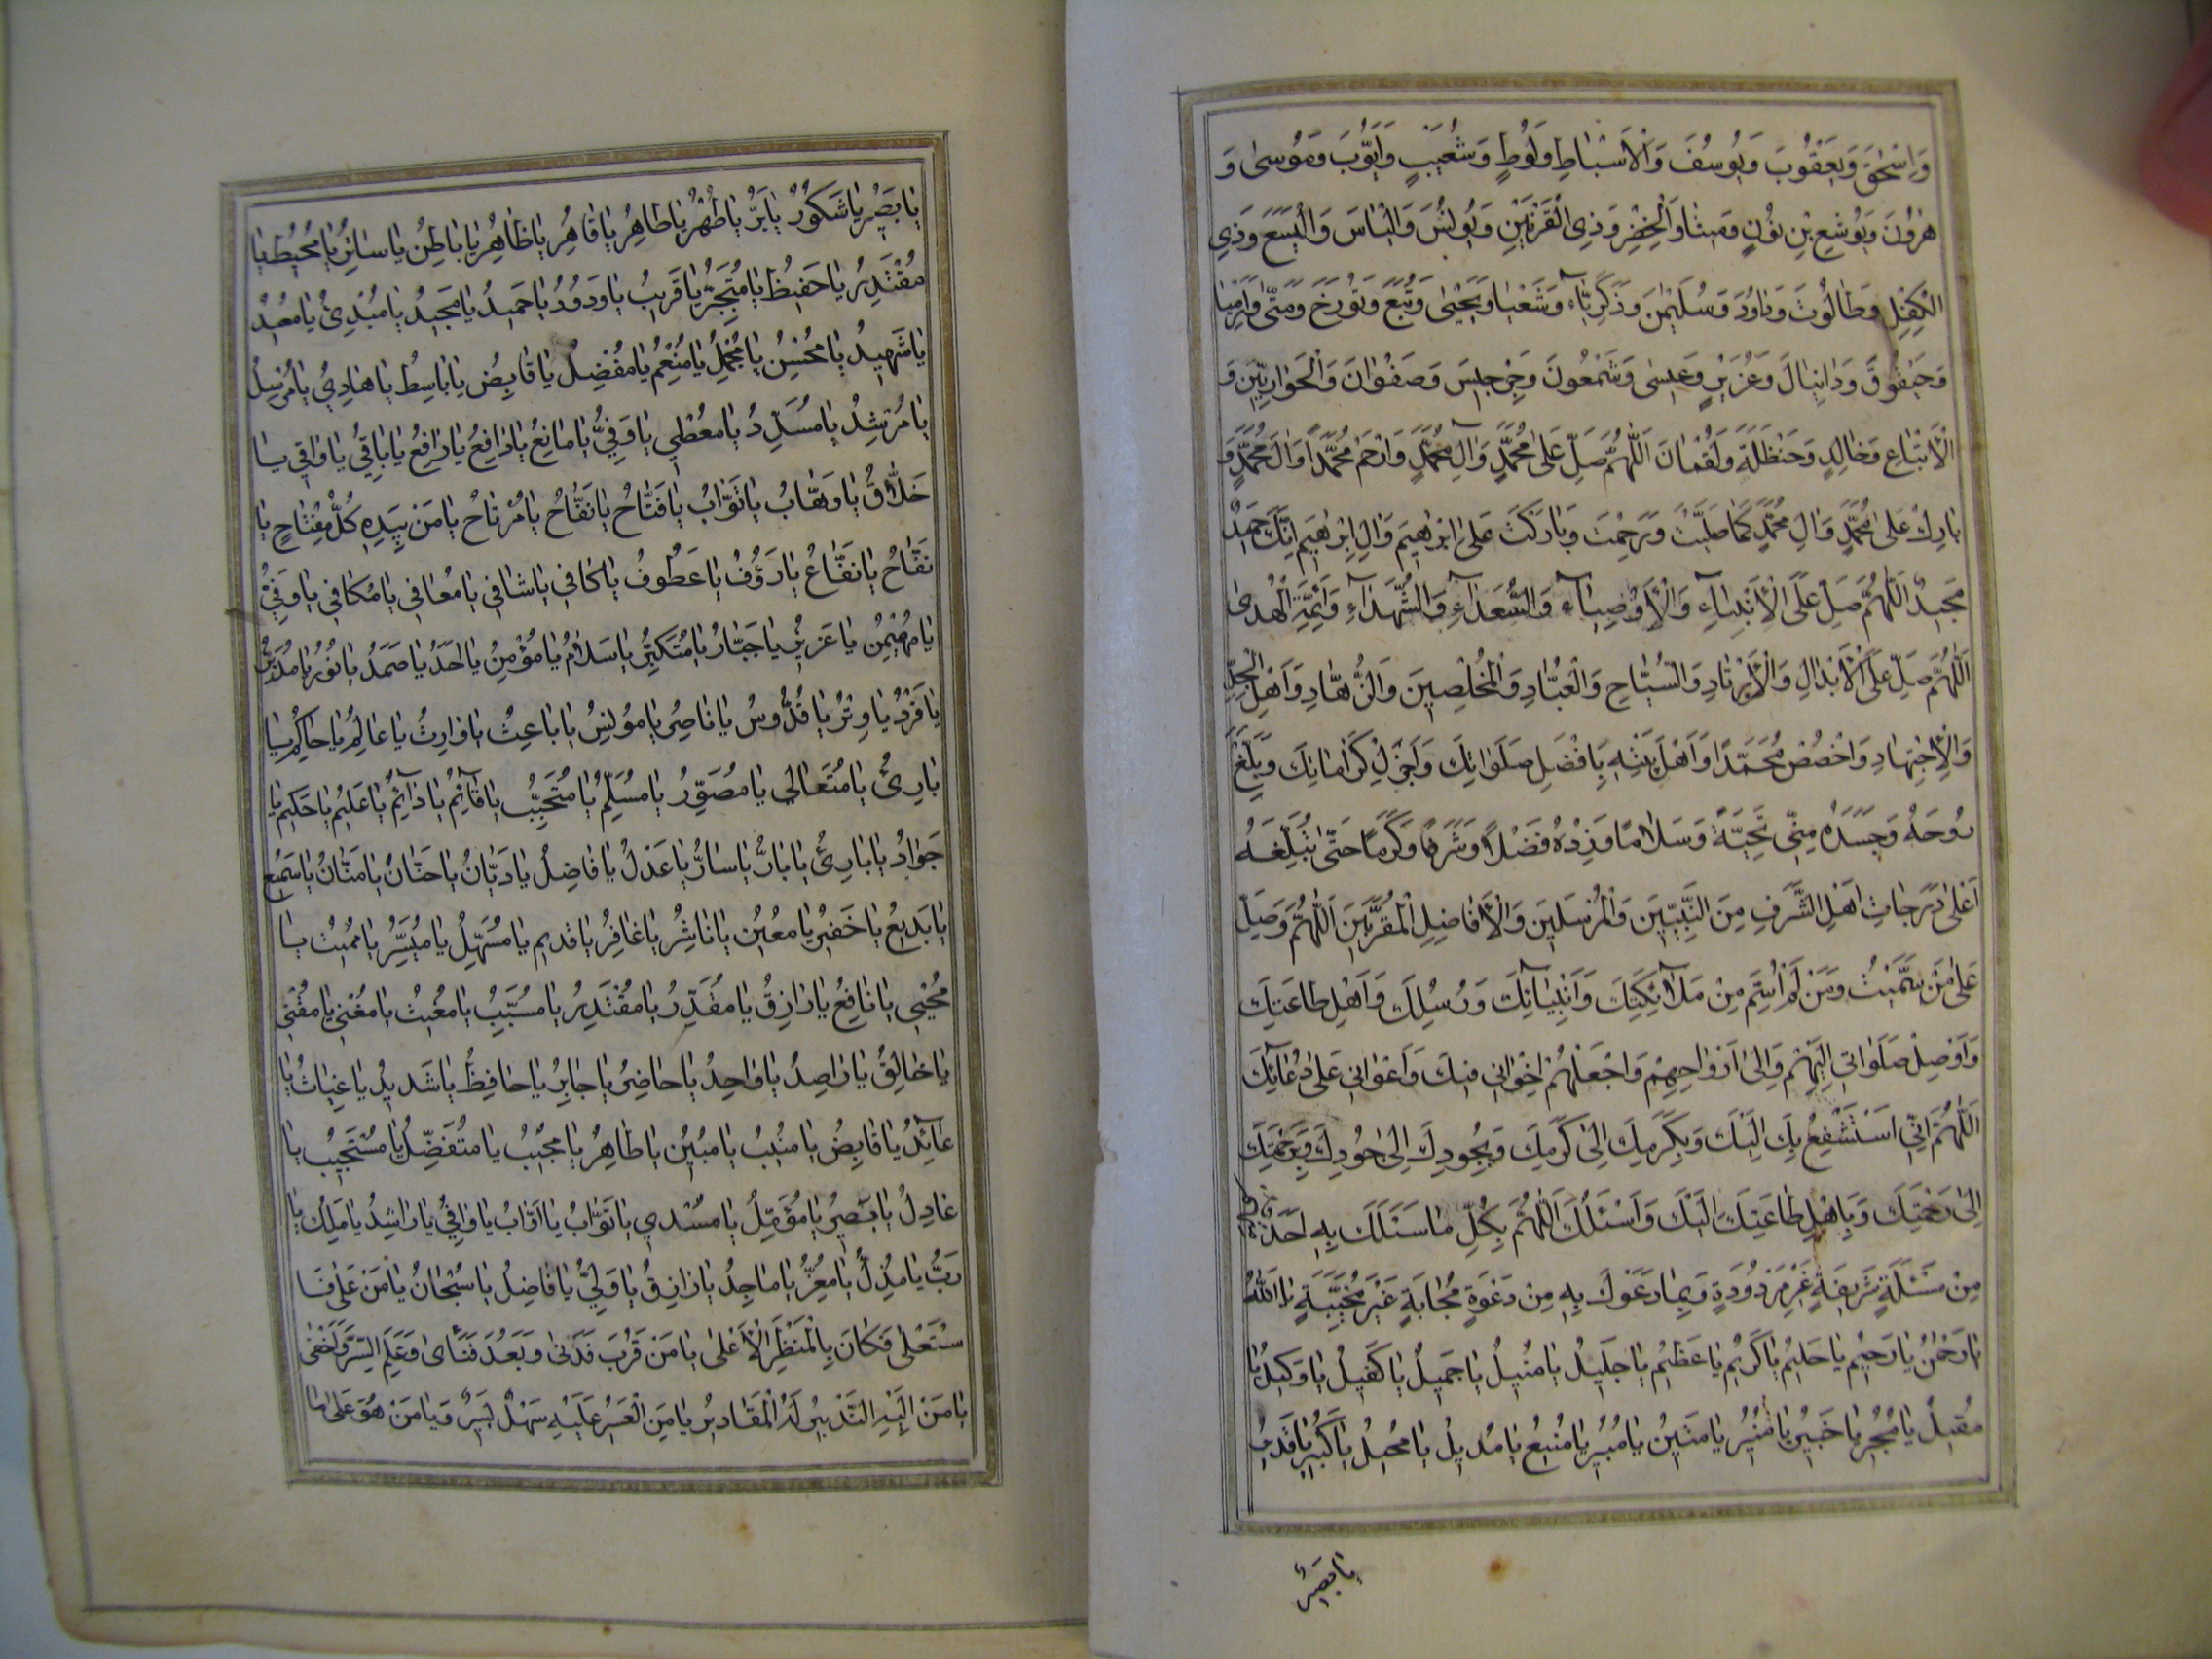 وَاِسْحٰقَ وَيَعْقُوبَ وَيُوسُفَ وَالْاَسْبَاطِ وَلُوطٍ وَشُعَيْبٍ وَاَيُّوبَ وَمُوسىٰ وَ
هٰرُونَ وَيُوشَعِ بْنِ نُونٍ وَمِيثٰا وَالْخِضْرِ وَذِى الْقَرْنَيْنِ وَيُونُسَ وَاِلْيٰاسَ وَالْيَسَعَ وَذِى
الْكِفْلِ وَطٰالُوتَ وَدٰاوُدَ وَسُلَيْمٰنَ وَزَكَرِيّٰاۤءَ وَشَعْيٰا وَيَحْيىٰ وَتُبَّعٍ وَتُورَخَ وَمَتّٰى وَاِرْمِيٰا
وَحَيْقُوقَ وَدٰانِيٰالَ وَعُزَيْرٍ وَعيسىٰ وَشَمْعُونَ وَجِرْجيسَ وَصَفْوٰانَ وَالْحَوٰارِيّينَ وَ
الْاَتْبٰاعِ وَخٰالِدٍ وَحَنْظَلَةَ وَلُقْمٰانَ اَللّٰهُمَّ صَلِّ عَلىٰ مُحَمَّدٍ وَاٰلِ مُحَمَّدٍ وَارْحَمْ مُحَمَّدًا وَاٰلَ مُحَمَّدٍ وَ
بٰارِكْ عَلىٰ مُحَمَّدٍ وَاٰلِ مُحَمَّدٍ كَمٰا صَلَّيْتَ وَرَحِمْتَ وَبٰارَكْتَ عَلىٰ اِبْرٰهيمَ وَاٰلِ اِبْرٰهيمَ اِنَّكَ حَميدٌ
مَجيدٌ اَللّٰهُمَّ صَلِّ عَلَى الْاَنْبِيٰاۤءِ وَالْاَوْصِيٰاۤءِ وَالسُّعَدٰاۤءِ وَالشُّهَدٰاۤءِ وَاَئِمَّةِ الْهُدىٰ
اَللّٰهُمَّ صَلِّ عَلَى الْاَبْدٰالِ وَالْاَوْتٰادِ وَالسُّيّٰاحِ وَالْعُبّٰادِ وَالْمُخْلِصينَ وَالزُّهّٰادِ وَاَهْلِ الْجِدِّ
وَالْاِجْتِهٰادِ وَاخْصُصْ مُحَمَّدًا وَاَهْلَ بَيْتِهِ بِاَفْضَلِ صَلَوٰاتِكَ وَاَجْزَلِ كَرٰامٰاتِكَ وَبَلِّغْ
رُوحَهُ وَجَسَدَهُ مِنّى تَحِيَّةً وَسَلٰامًا وَزِدْهُ فَضْلًا وَشَرَفًا وَكَرَمًا حَتّٰى تُبَلِّغَهُ
اَعْلىٰ دَرَجٰاتِ اَهْلِ الشَّرَفِ مِنَ النَّبِيّينَ وَالْمُرْسَلينَ وَالْاَفٰاضِلِ الْمُقَرَّبينَ اَللّٰهُمَّ وَصَلِّ
عَلىٰ مَنْ سَمَّيْتُ وَمَنْ لَمْ اُسَمِّ مِنْ مَلٰاۤئِكَتِكَ وَاَنْبِيٰاۤئِكَ وَرُسُلِكَ وَاَهْلِ طٰاعَتِكَ
وَاَوْصِلْ صَلَوٰاتى اِلَيْهِمْ وَاِلىٰ اَرْوٰاحِهِمْ وَاجْعَلْهُمْ اِخْوٰانى فيكَ وَاَعْوٰانى عَلىٰ دُعٰاۤئِكَ
اَللّٰهُمَّ اِنّى اَسْتَشْفِعُ بِكَ اِلَيْكَ وَبِكَرَمِكَ اِلىٰ كَرَمِكَ وَبِجُودِكَ اِلىٰ جُودِكَ وَبِرَحْمَتِكَ
اِلىٰ رَحْمَتِكَ وَبِاَهْلِ طٰاعَتِكَ اِلَيْكَ وَاَسْئَلُكَ اَللّٰهُمَّ بِكُلِّ مٰا سَئَلَكَ بِهِ اَحَدٌ
مِنْ مَسْئَلَةٍ شَريفَةٍ غَيْرِ مَرْدُودَةٍ وَبِمٰا دَعَوْكَ بِهِ مِنْ دَعْوَةٍ مُجٰابَةٍ غَيْرِ مُخَيَّبَةٍ يٰا اَللّٰهُ
يٰا رَحْمٰنُ يٰا رَحيمُ يٰا حَليمُ يٰا كَريمُ يٰا عَظيمُ يٰا جَليلُ يٰا مُنيلُ يٰا جَميلُ يٰا كَفيلُ يٰا وَكيلُ يٰا
مُقيلُ يٰا مُجيرُ يٰا خَبيرُ يٰا مُنيرُ يٰا مَتينُ يٰا مُبيرُ يٰا مَنيعُ يٰا مُديلُ يٰا مُحيلُ يٰا كَبيرُ يٰا قَديرُ
يٰا بَصيرُ
يٰا بَصيرُ يٰا شَكُورُ يٰا بَرُّ يٰا طُهْرُ يٰا طٰاهِرُ يٰا قٰاهِرُ يٰا ظٰاهِرُ يٰا بٰاطِنُ يٰا سٰاتِرُ يٰا مُحيطُ يٰا
مُقْتَدِرُ يٰا حَفيظُ يٰا مُتَجَبِّرُ يٰا قَريبُ يٰا وَدُودُ يٰا حَميدُ يٰا مَجيدُ يٰا مُبْدِئُ يٰا مُعيدُ
يٰا شَهيدُ يٰا مُحْسِنُ يٰا مُجْمِلُ يٰا مُنْعِمُ يٰا مُفْضِلُ يٰا قٰابِضُ يٰا بٰاسِطُ يٰا هٰادِى يٰا مُرْسِلُ
يٰا مُرْشِدُ يٰا مُسَدِّدُ يٰا مُعْطى يٰا وَفِيُّ يٰا مٰانِعُ يٰا دٰافِعُ يٰا رٰافِعُ يٰا بٰاقى يٰا وٰاقى يٰا
خَلّٰاقُ يٰا وَهّٰابُ يٰا تَوّٰابُ يٰا فَتّٰاحُ يٰا نَفّٰاحُ يٰا مُرْتٰاحُ يٰا مَنْ بِيَدِهِ كُلُّ مِفْتٰاحٍ يٰا
نَفّٰاحُ يٰا نَفّٰاعُ يٰا رَؤُفُ يٰا عَطُوفُ يٰا كٰافى يٰا شٰافى يٰا مُعٰافى يٰا مُكٰافى يٰا وَفِيُّ
يٰا مُهَيْمِنُ يٰا عَزيزُ يٰا جَبّٰارُ يٰا مُتَكَبِّرُ يٰا سَلٰامُ يٰا مُؤْمِنُ يٰا اَحَدُ يٰا صَمَدُ يٰا نُورُ يٰا مُدَبِّرُ
يٰا فَرْدُ يٰا وِتْرُ يٰا قُدُّوسُ يٰا نٰاصِرُ يٰا مُؤْنِسُ يٰا بٰاعِثُ يٰا وٰارِثُ يٰا عٰالِمُ يٰا حٰاكِمُ يٰا
بٰارِئُ يٰا مُتَعٰالى يٰا مُصَوِّرُ يٰا مُسَلِّمُ يٰا مُتَحَبِّبُ يٰا قٰاۤئِمُ يٰا دٰاۤئِمُ يٰا عَليمُ يٰا حَكيمُ يٰا
جَوٰادُ يٰا بٰارِئُ يٰا بٰارُّ يٰا سٰارُّ يٰا عَدْلُ يٰا فٰاضِلُ يٰا دَيّٰانُ يٰا حَنّٰانُ يٰا مَنّٰانُ يٰا سَميعُ
يٰا بَديعُ يٰا خَفيرُ يٰا مُعينُ يٰا نٰاشِرُ يٰا غٰافِرُ يٰا قَديمُ يٰا مُسَهِّلُ يٰا مُيَسِّرُ يٰا مُميتُ يٰا
مُحْيى يٰا نٰافِعُ يٰا رٰازِقُ يٰا مُقَدِّرُ يٰا مُقْتَدِرُ يٰا مُسَبِّبُ يٰا مُغيثُ يٰا مُغْنى يٰا مُقْنى
يٰا خٰالِقُ يٰا رٰاصِدُ يٰا وٰاحِدُ يٰا حٰاضِرُ يٰا جٰابِرُ يٰا حٰافِظُ يٰا شَديدُ يٰا غِيٰاثُ يٰا
عٰاۤئِدُ يٰا قٰابِضُ يٰا مُنيبُ يٰا مُبينُ يٰا طٰاهِرُ يٰا مُجيبُ يٰا مُتَفَضِّلُ يٰا مُسْتَجيبُ يٰا
عٰادِلُ يٰا بَصيرُ يٰا مُؤَمَّلُ يٰا مُسْدى يٰا تَوّٰابُ يٰا اَوّٰابُ يٰا وٰافى يٰا رٰاشِدُ يٰا مَلِكُ يٰا
رَبُّ يٰا مُذِلُّ يٰا مُعِزُّ يٰا مٰاجِدُ يٰا رٰازِقُ يٰا وَلِيُّ يٰا فٰاضِلُ يٰا سُبْحٰانُ يٰا مَنْ عَلىٰ فَا
سْتَعْلىٰ فَكٰانَ بِالْمَنْظَرِ الْاَعْلىٰ يٰا مَنْ قَرُبَ فَدَنىٰ وَبَعُدَ فَنَاٰى وَعَلِمَ السِّرَّ وَاَخْفىٰ
يٰا مَنْ اِلَيْهِ التَّدْبيرُ لَهُ الْمَقٰاديرُ يٰا مَنِ الْعَسيرُ عَلَيْهِ سَهْلٌ يَسيرٌ وَيٰا مَنْ هُوَ عَلىٰ مٰا